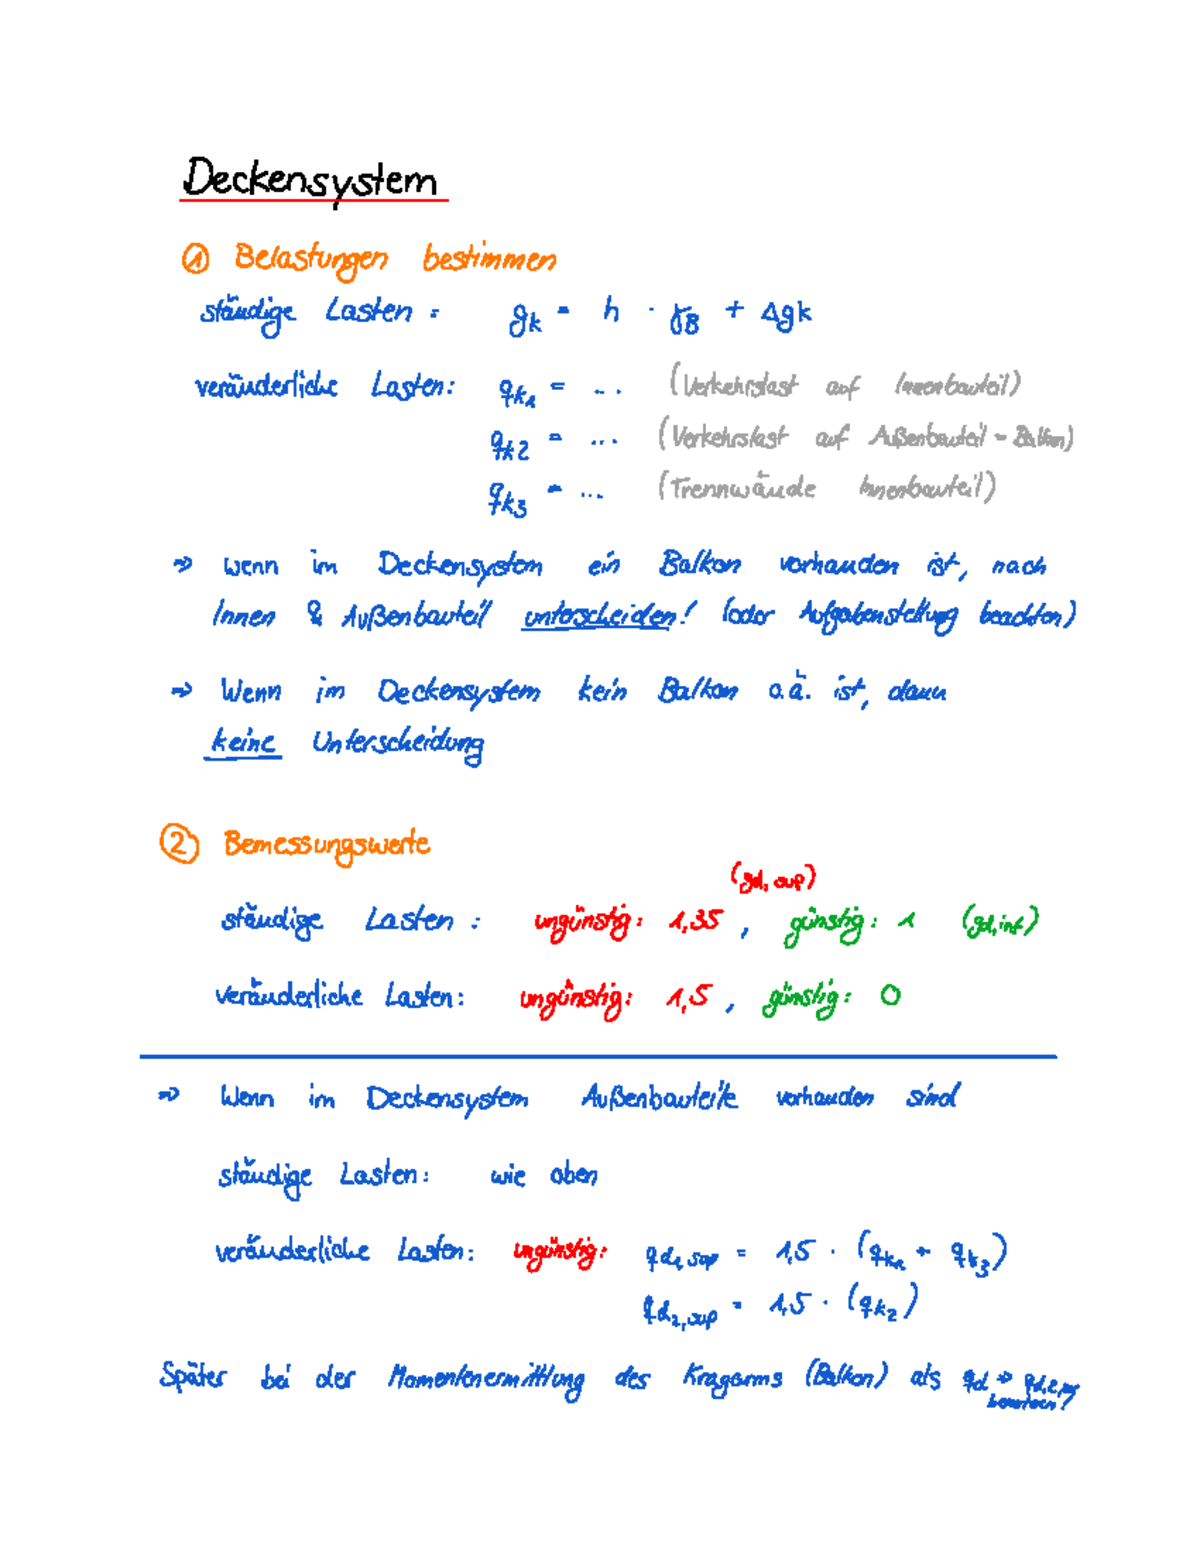 Deckensystem
① Belastungen bestimmen
ständige Lasten : gk = h · γB + Δgk
veränderliche Lasten: qk1 = ... (Verkehrslast auf Innenbauteil)
qk2 = ... (Verkehrslast auf Außenbauteil - Balkon)
qk3 = ... (Trennwände Innenbauteil)
⇒ Wenn im Deckensystem ein Balkon vorhanden ist, nach
Innen & Außenbauteil unterscheiden! (oder Aufgabenstellung beachten)
⇒ Wenn im Deckensystem kein Balkon o.ä. ist, dann
keine Unterscheidung
② Bemessungswerte
(gd, sup)
ständige Lasten : ungünstig: 1,35 , günstig: 1 (gd,inf)
veränderliche Lasten: ungünstig: 1,5 , günstig: 0
⇒ Wenn im Deckensystem Außenbauteile vorhanden sind
ständige Lasten: wie oben
veränderliche Lasten: ungünstig: qd1,sup = 1,5 · (qk1 + qk3)
qd2,sup = 1,5 · (qk2)
Später bei der Momentenermittlung des Kragarms (Balkon) als qd ⇒ qd,2,sup